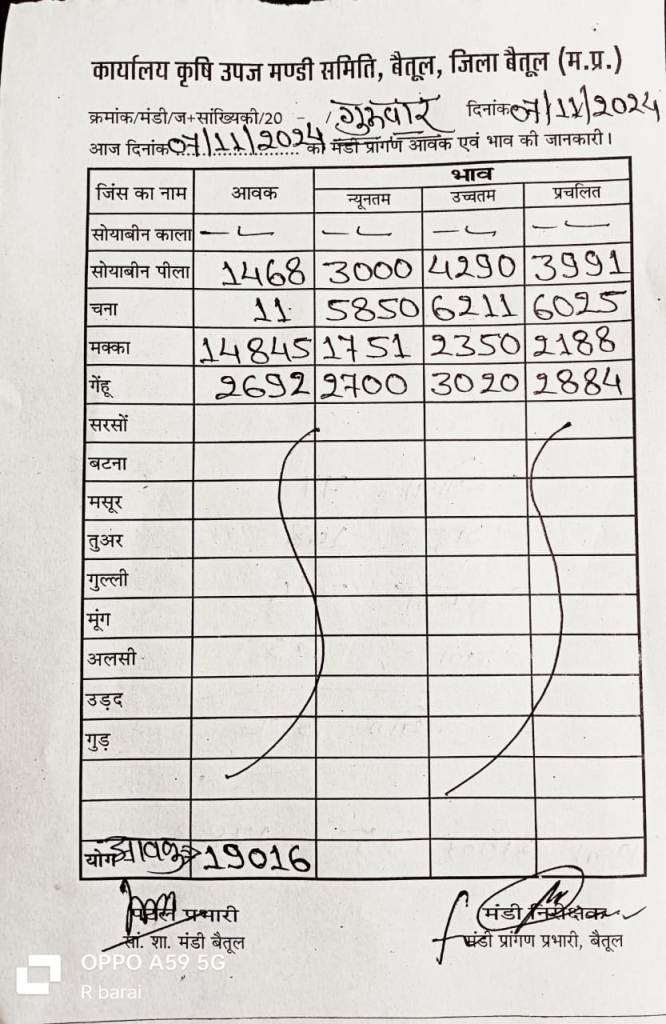 कार्यालय कृषि उपज मण्डी समिति, बैतूल, जिला बैतूल (म.प्र.)
क्रमांक/मंडी/ज+सांख्यिकी/20 - / गुरूवार दिनांक 07/11/2024
आज दिनांक 07/11/2024 को मंडी प्रांगण आवक एवं भाव की जानकारी।
जिंस का नाम आवक भाव
न्यूनतम उच्चतम प्रचलित
सोयाबीन काला
सोयाबीन पीला 1468 3000 4290 3991
चना 11 5850 6211 6025
मक्का 14845 1751 2350 2188
गेंहू 2692 2700 3020 2884
सरसों
बटना
मसूर
तुअर
गुल्ली
मूंग
अलसी
उड़द
गुड़
योग आवक 19016
प्रभारी मंडी निरीक्षक
सां. शा. मंडी बैतूल मंडी प्रांगण प्रभारी, बैतूल
OPPO A59 5G
R barai